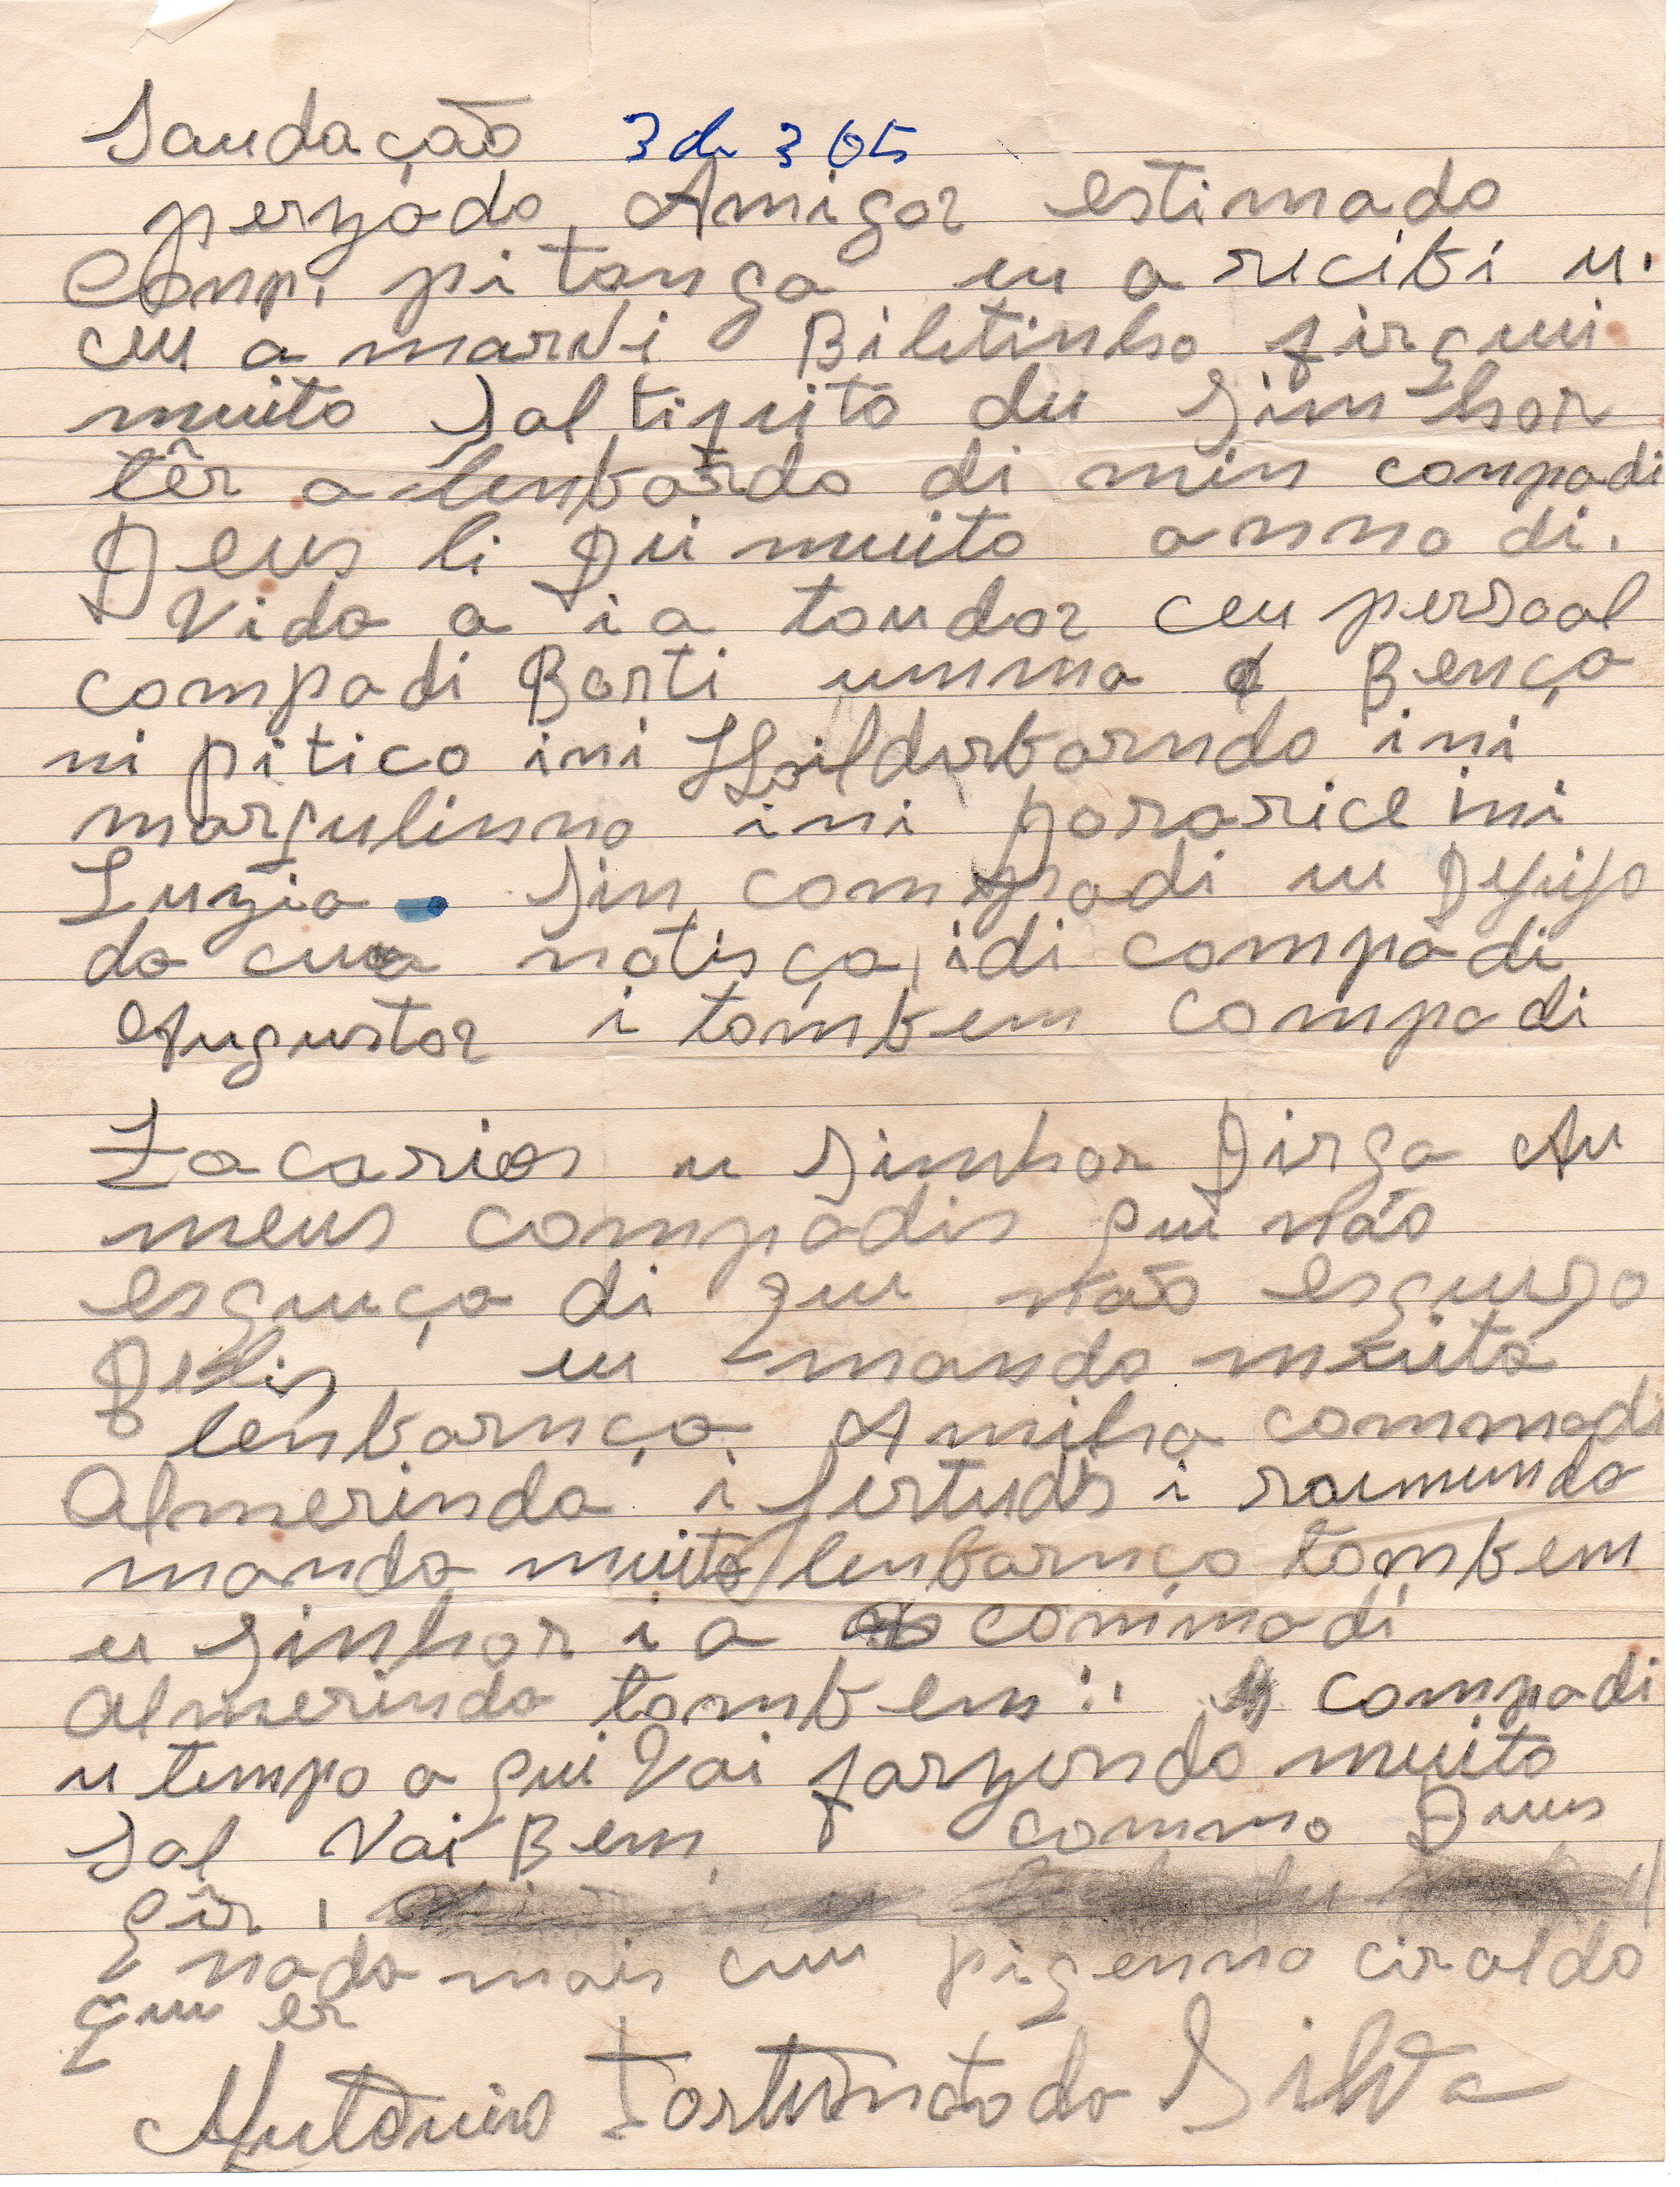 Saudação 3 de 3 65
perzado Amigor estimado
Conpi pitanga eu a ricibi u.
ceu a marvi Biletinho firqui
muito saltifeito du Sinnhor
têr a lenbardo di min conpadi
Deus li Dei muito anno di.
Vida a i a toudor ceu persoal
compadi Borti umma Bença
ni pitico ini Hoildirbarndo ini
margulinno ini Dorarice ini
Luzia Sin compadi eu Dezijo
da cua notisça, idi compadi
Augustor i tombem compadi
Zacarios u Sinnhor Dirga Au
meus compadis qui não
esqueça di que não esquiso
Delis eu mando muita
lenbarnça Amilha commadi
Almerinda i Jertuds i raimunda
manda muito lenbarnça tombem
u Sinhor i a commadi
Almerinda tombem :. compadi
u tempo a qui Vai farzendo muito
sal Vai Bem commo Deus
qêr.
nada mais ceu piqenno ciraldo
que er
Antonio Fortunatoda Silva